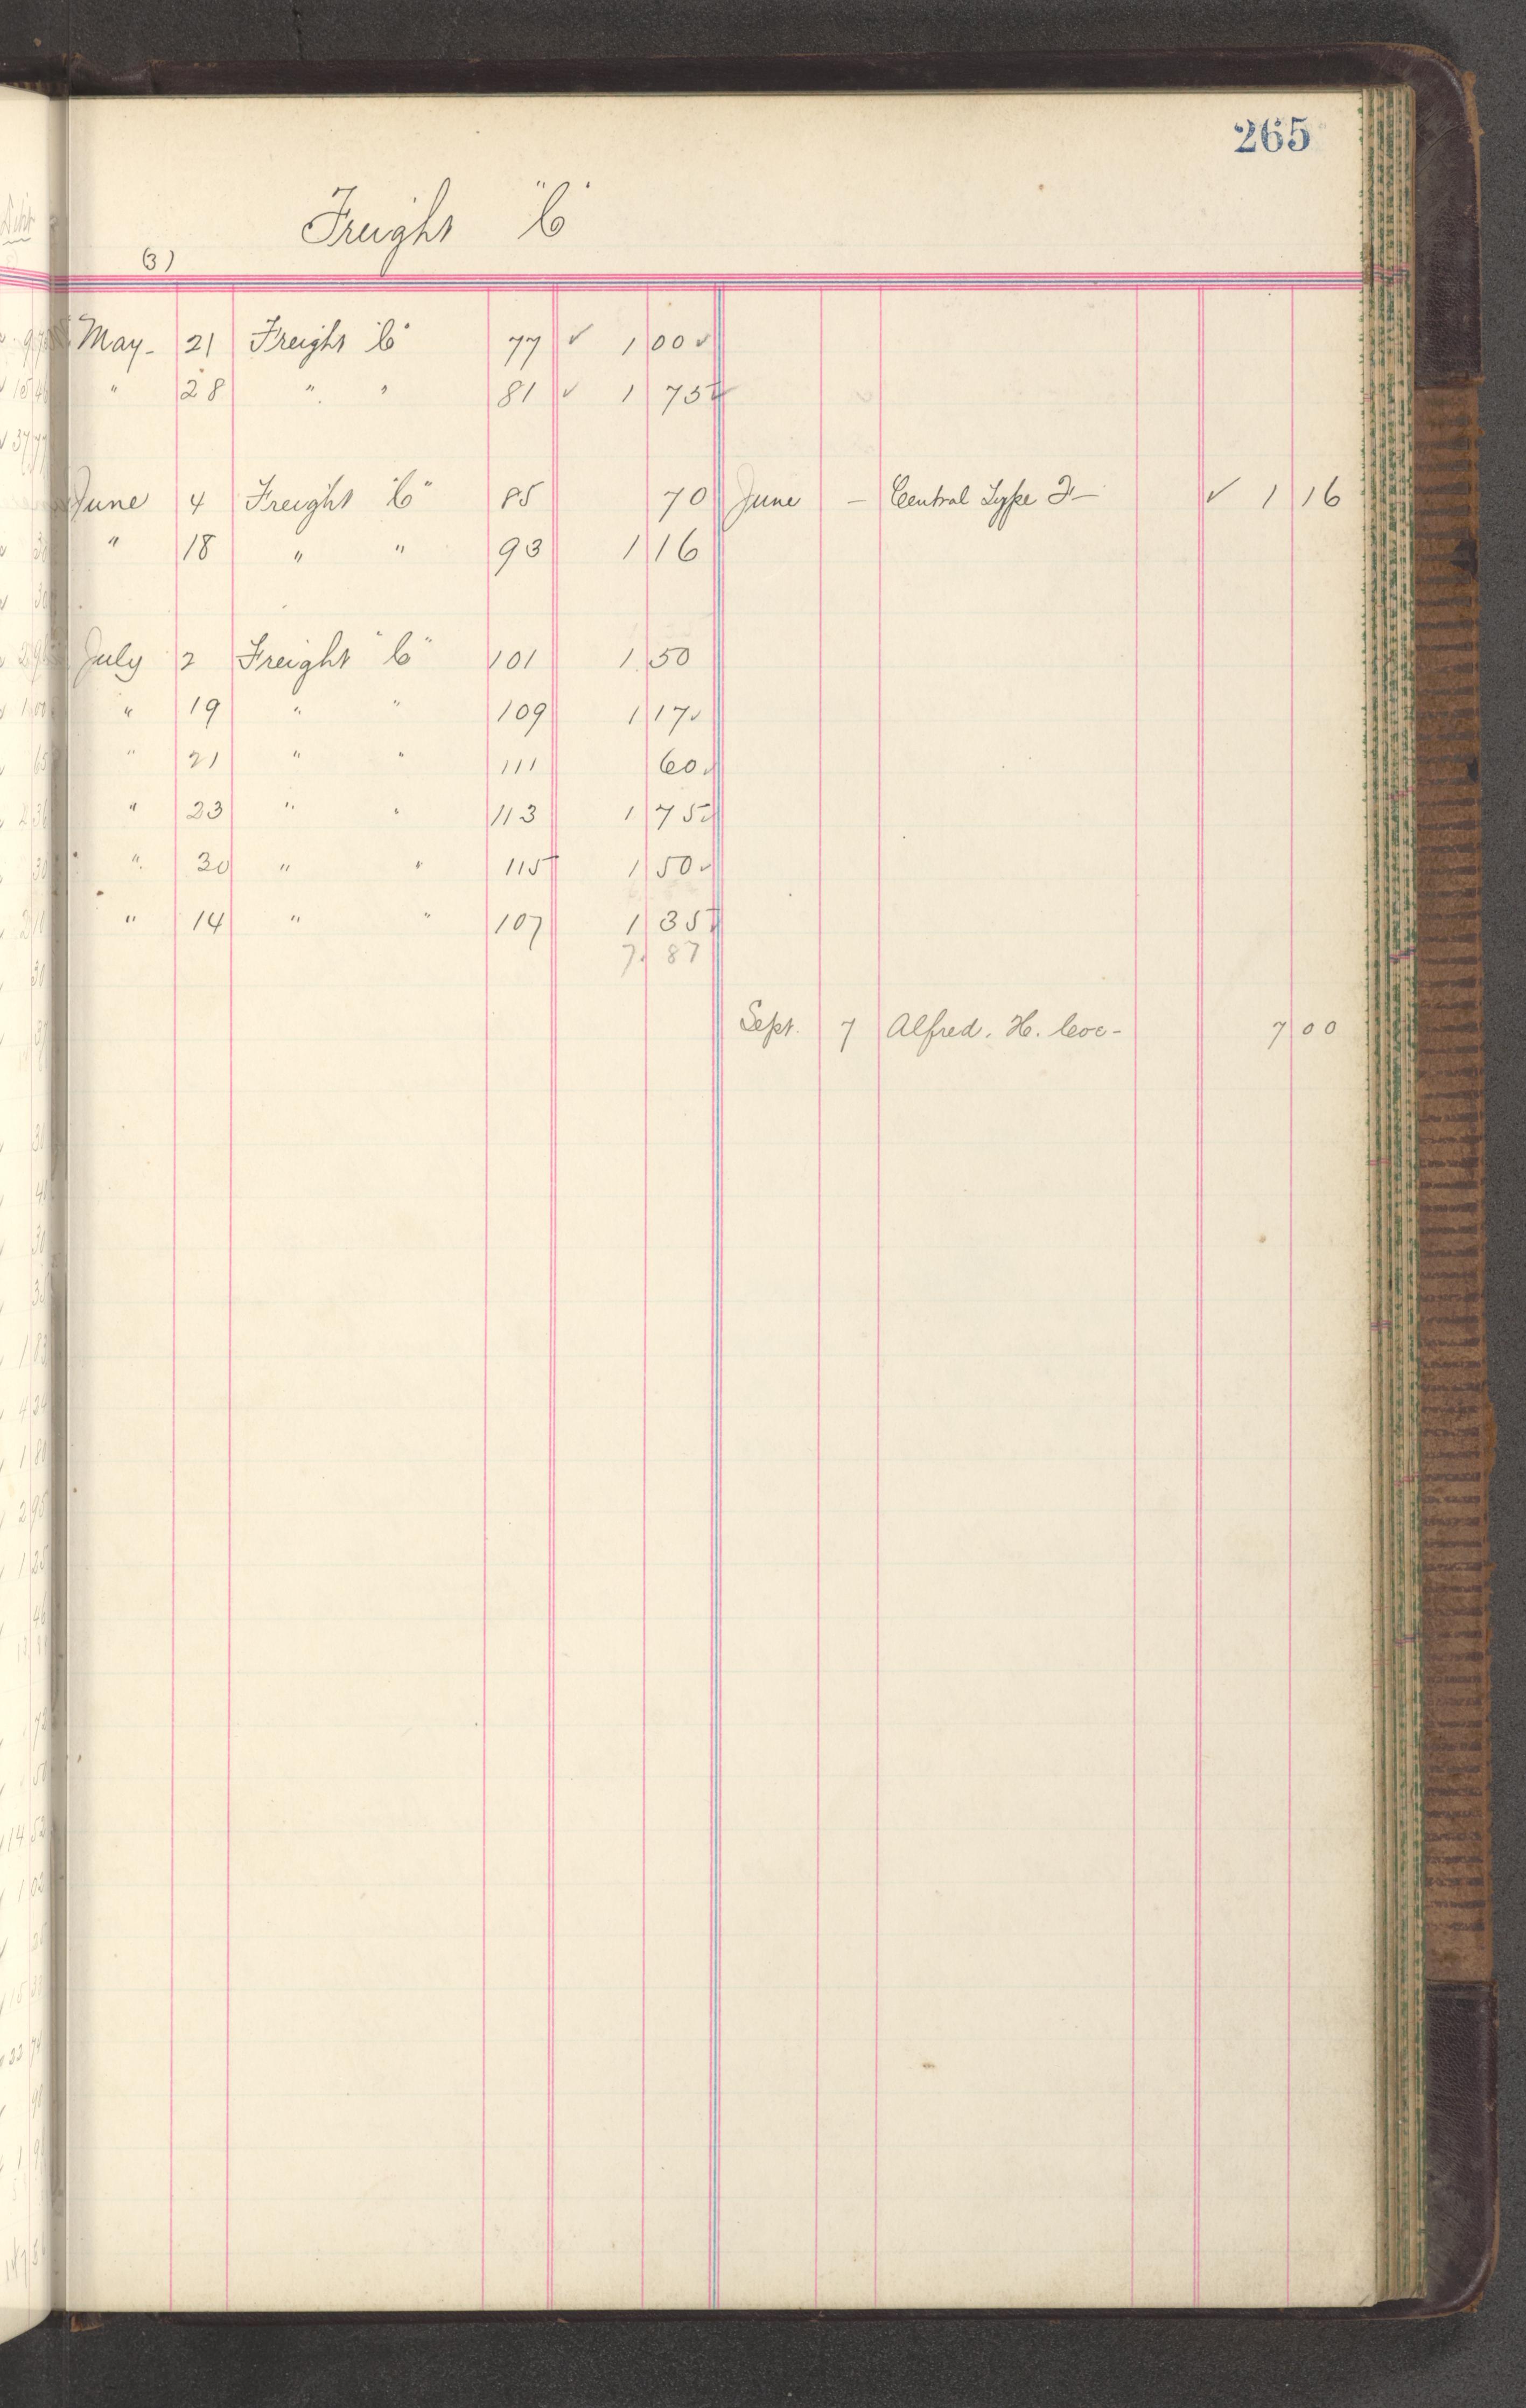 265
Freight "C"
(3)
May- 21 Freight "C" 77 ✓ 1 00 ✓
" 28 " " 81 ✓ 1 75 ✓
June 4 Freight "C" 85 70 June – Central Type F– ✓ 1 16
" 18 " " 93 1 16
July 2 Freight "C" 101 1 50
" 19 " " 109 1 17 ✓
" 21 " " 111 60 ✓
" 23 " " 113 1 75 ✓
" 30 " " 115 1 50 ✓
" 14 " " 107 1 35 ✓
7. 87
Sept. 7 Alfred. H. Coe- 7 00